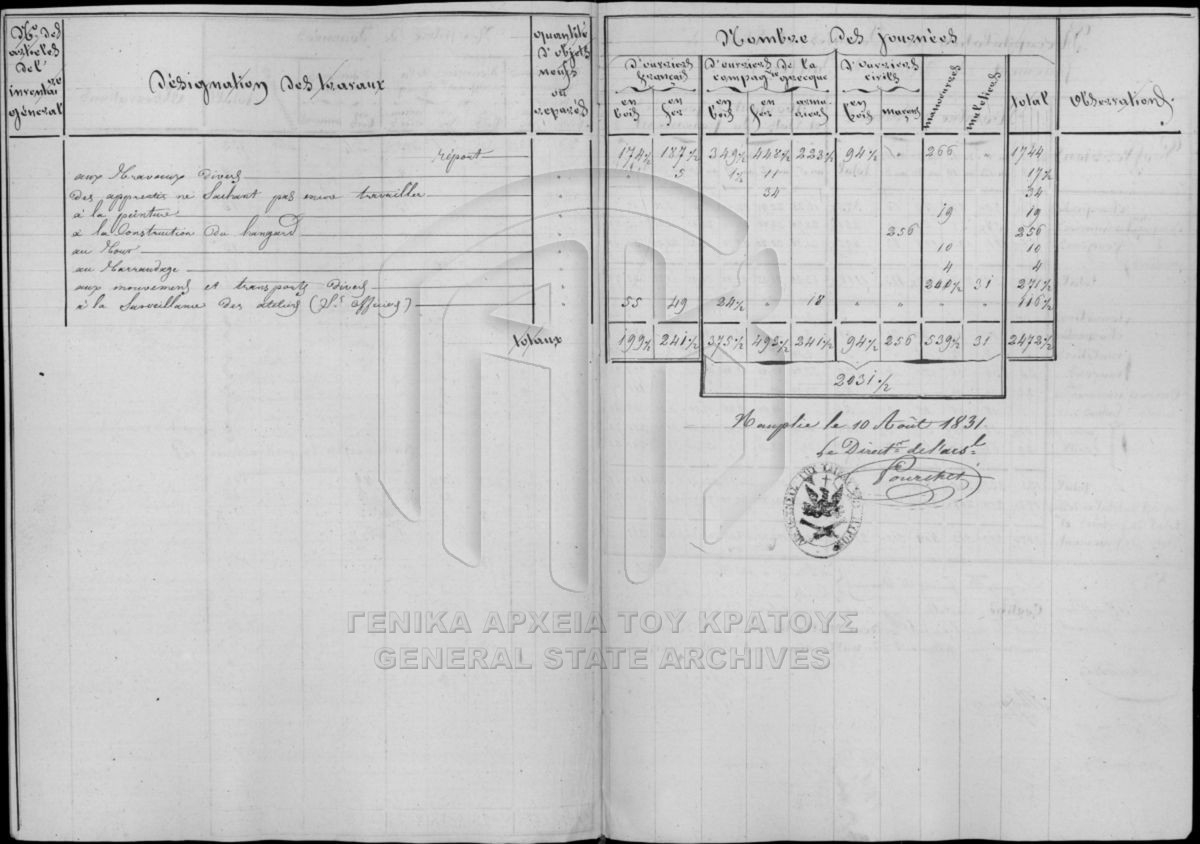 Nos des articles de l'inventaire général
Désignation des travaux
quantité d'objets neufs ou réparés
Nombre des journées
D'ouvriers français
D'ouvriers de la compagnie grecque
D'ouvriers civils
manœuvres
muletiers
total
Observations.
en bois
en fer
en bois
en fer
armuriers
en bois
maçons
réport 174 1/2 187 1/2 349 1/2 448 1/2 223 1/2 94 1/2 " 266 1744
aux Travaux divers " " 5 1 1/2 11 17 1/2
des apprentis ne Sachant pas encore travailler " 34 34
à la peinture " 19 19
à la Construction du hangard " 256 256
au Four " 10 10
au Marraudage " 4 4
aux mouvements et transports divers " 240 1/2 31 271 1/2
à la Surveillance des ateliers (Ss officiers) " 55 49 24 1/2 " 18 " " " " 146 1/2
totaux 199 1/2 241 1/2 375 1/2 493 1/2 241 1/2 94 1/2 256 539 1/2 31 2472 1/2
2031 1/2
Nauplie le 10 Août 1831
Le Directr de l'arsl
Pourchet
ΓΕΝΙΚΑ ΑΡΧΕΙΑ ΤΟΥ ΚΡΑΤΟΥΣ
GENERAL STATE ARCHIVES